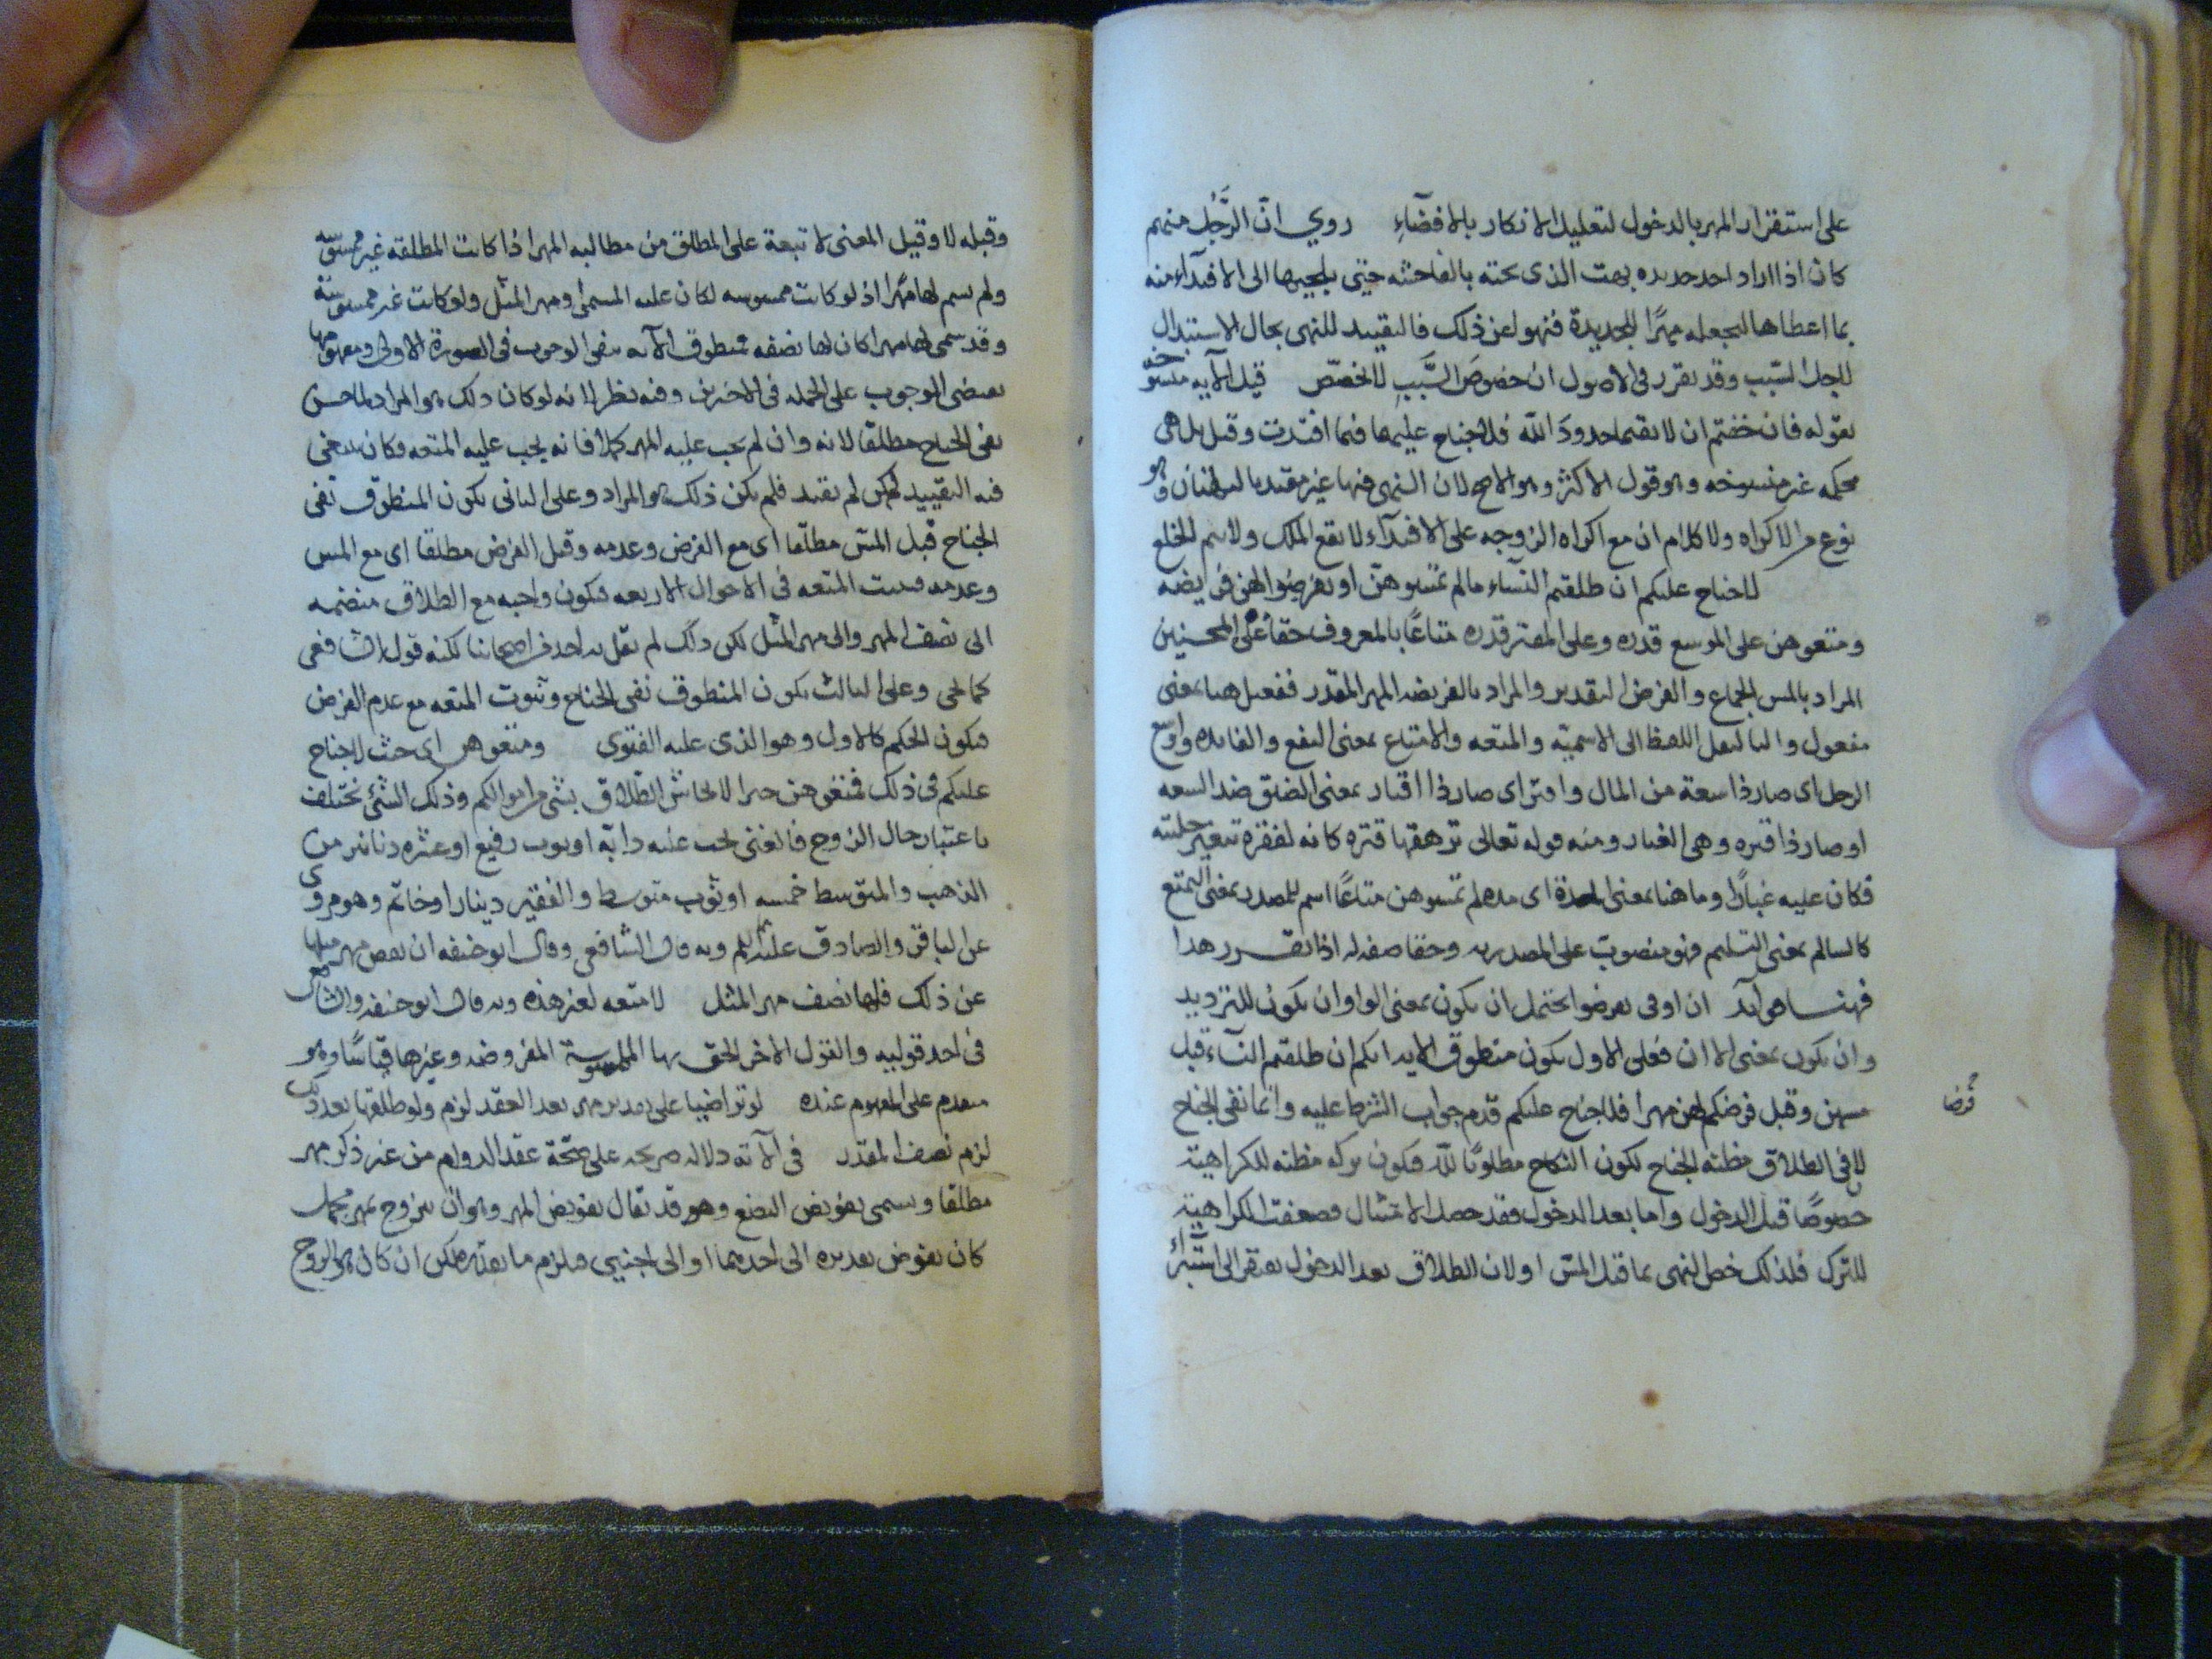 على استقرار المهر بالدخول لتعليل الانكار بالافضآءِ روي انّ الرَّجُل منهم
كان اذا اراد احد جديده بهت الذى تحته بالفاحشه حتى يلجيها الى الافتدآء منه
بما اعطاها ليجعله مهرًا للجديدة فنهوا عن ذلك فالتقييد للنهى بحال الاستبدال
للجل السّبب وقد تقرر فى الاصول ان خصوصَ السَّببِ لا يخصّص قيل الآيه منسوخه
بقوله فان خفتم ان لا يقيما حدودَ الله فلا جناح عليهما فيما افتدت وقيل بل هى
محكمه غير منسوخه وهو قول الاكثر وهو الاصح لان النهى فيها غير مقيد وهو
نوع من الاكراه ولا كلام ان مع اكراه الزوجه على الافتدآء لا يقع الملك ولا يتم الخلع
لا جناح عليكم ان طلقتم النسآء ما لم تمسوهنّ او تفرضوا لهن فريضه
ومتعوهن على الموسع قدره وعلى المقتر قدره متاعًا بالمعروف حقًا على المحسنين
المراد بالمس الجماع والفرض التقدير والمراد بالفريضه المهر المقدر ففعيل هنا بمعنى
مفعول والتا لنقل اللفظ الى الاسميّه والمتعه والامتاع بمعنى النفع والفايده واوسع
الرجل اى صار ذا سعة من المال واقتر اى صار ذا اقتار بمعنى الضيق ضد السعه
او صار ذا قتره وهى الغبار ومنه قوله تعالى ترهقها قترة كانه لفقره تغير حليته
فكان عليه غبارًا وما هنا بمعنى المدة اى مده لم تمسوهن متاعًا اسم للمصدر بمعنى التمتع
كالسالم بمعنى التسليم فهو منصوب على المصدريه وحقا صفه له اذا تقرر هذا
فهنا ان او فى تفرضوا يحتمل ان يكون بمعنى الواو وان يكون للترديد
وان يكون بمعنى الا ان فعلى الاول يكون منطوق الايه انكم ان طلقتم النسآء قبل
مسهن وقبل فرضكم لهن مهرا فلا جناح عليكم قدم جواب الشرط عليه وانما نفى الجناح
لان فى الطلاق مظنه الجناح لكون النكاح مطلوبًا لله فيكون تركه مظنه للكراهية
خصوصًا قبل الدخول واما بعد الدخول فقد حصل الامتثال فضعفت الكراهية
للترك فلذلك خص النهى بما قبل المسّ او لان الطلاق بعد الدخول يفتقر الى استبرآء
فرضا
وقبله لا وقيل المعنى لا تبعة على المطلق من مطالبه المهر اذا كانت المطلقه غير ممسوسه
ولم يسم لها مهرًا اذ لو كانت ممسوسه لكان عليه المسمىٰ او مهر المثل ولو كانت غير ممسوسة
وقد سمى لها مهرا كان لها نصفه فمنطوق الآيه ينفى الوجوب فى الصورة الاولى ومفهومها
يقتضى الوجوب على الجمله فى الاخيرين وفيه نظر لانه لو كان ذلك هو المراد لما حسن
نفى الجناح مطلقًا لانه وان لم يجب عليه المهر كملا فانه يجب عليه المتعه فكان ينبغى
فيه التقييد لكن لم يقيد فلم يكن ذلك هو المراد وعلى الثانى يكون المنطوق نفى
الجناح قبل المسّ مطلقًا اى مع الفرض وعدمه وقبل الفرض مطلقا اى مع المس
وعدمه فثبت المتعه فى الاحوال الاربعه فيكون واجبه مع الطلاق منضمه
الى نصف المهر والى مهر المثل لكن ذلك لم يقل به احد من اصحابنا لكنه قول الشافعى
كما يجى وعلى الثالث يكون المنطوق نفى الجناح وثبوت المتعه مع عدم الفرض
فيكون الحكم كالاول وهو الذى عليه الفتوى ومتعوهن اى حيث لا جناح
عليكم فى ذلك فمتعوهن جبرا لايحاش الطلاق بشئ من اموالكم وذلك الشئ يختلف
باعتبار حال الزوج فالغنى يجب عليه دابّة او ثوب رفيع او عشره دنانير من
الذهب والمتوسط خمسه او ثوب متوسط والفقير دينار او خاتم وهو مروى
عن الباقر والصادق عليهما السلم وبه قال الشافعى وقال ابو حنيفه ان نقص مهر مثلها
عن ذلك فلها نصف مهر المثل لا متعه لغير هذه وبه قال ابو حنيفه والشافعى
فى احد قوليه والقول الاخر الحق بها الممسوسة المفروضه وغيرها قياسًا وهو
مقدم على المفهوم عنده لو تراضيا على تقدير مهر بعد العقد لزم ولو طلقها بعد ذلك
لزم نصف المقدر فى الآيه دلاله صريحه على صحّة عقد الدوام من غير ذكر مهر
مطلقا ويسمى تفويض البضع وهو قد يقال تفويض المهر وهو ان يتزوج بمهر مجمل
كان يفوض تقديره الى احدهما او الى اجنبى فيلزم ما يقدره لكن ان كان هو الزوج